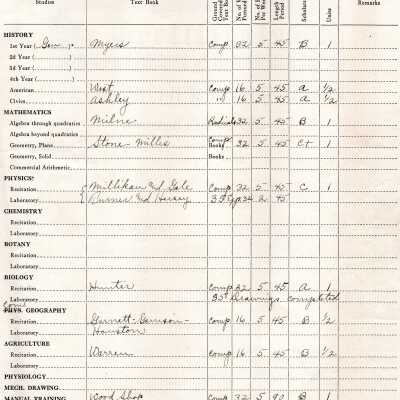 Studies Text Book Ground Covered in Text Book No. of Weeks No. of Per Week Length Period Scholarship Units Remarks
HISTORY
1st Year ( Gen ) Myers Comp 32 5 45 B 1
2d Year ( )
3d Year ( )
4th Year ( )
American West Comp 16 5 45 A 1/2
Civics Ashley " 16 5 45 A 1/2
MATHEMATICS
Algebra through quadratics Milne Radicals 32 5 45 B 1
Algebra beyond quadratics
Geometry, Plane Stone-Millis Comp Books 32 5 45 C+ 1
Geometry, Solid Books
Commercial Arithmetic
PHYSICS
Recitation Millikan and Gale Comp 32 5 45 C 1
Laboratory Turner and Hersey 35 Exp 32 2 45
CHEMISTRY
Recitation
Laboratory
BOTANY
Recitation
Laboratory
BIOLOGY
Recitation Hunter Comp 32 5 45 A 1
Laboratory 35 Drawings completed
Com'l
PHYS. GEOGRAPHY
Recitation Comp 16 5 45 B 1/2
Laboratory Houston
AGRICULTURE
Recitation Warren Comp 16 5 45 B 1/2
Laboratory
PHYSIOLOGY
MECH. DRAWING
MANUAL TRAINING Wood Shop Comp 32 5 90 B 1